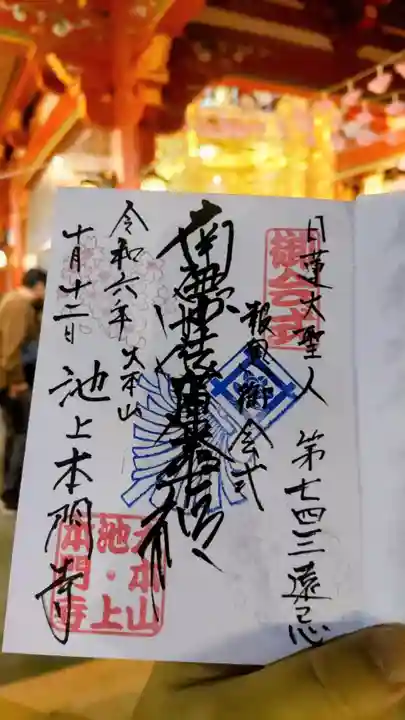 日蓮大聖人 第七四三遠忌
御会式
報恩 御会式
南無妙法蓮華経
大本山
令和六年
十月十二日 池上本門寺
大本山
池・上
本門寺